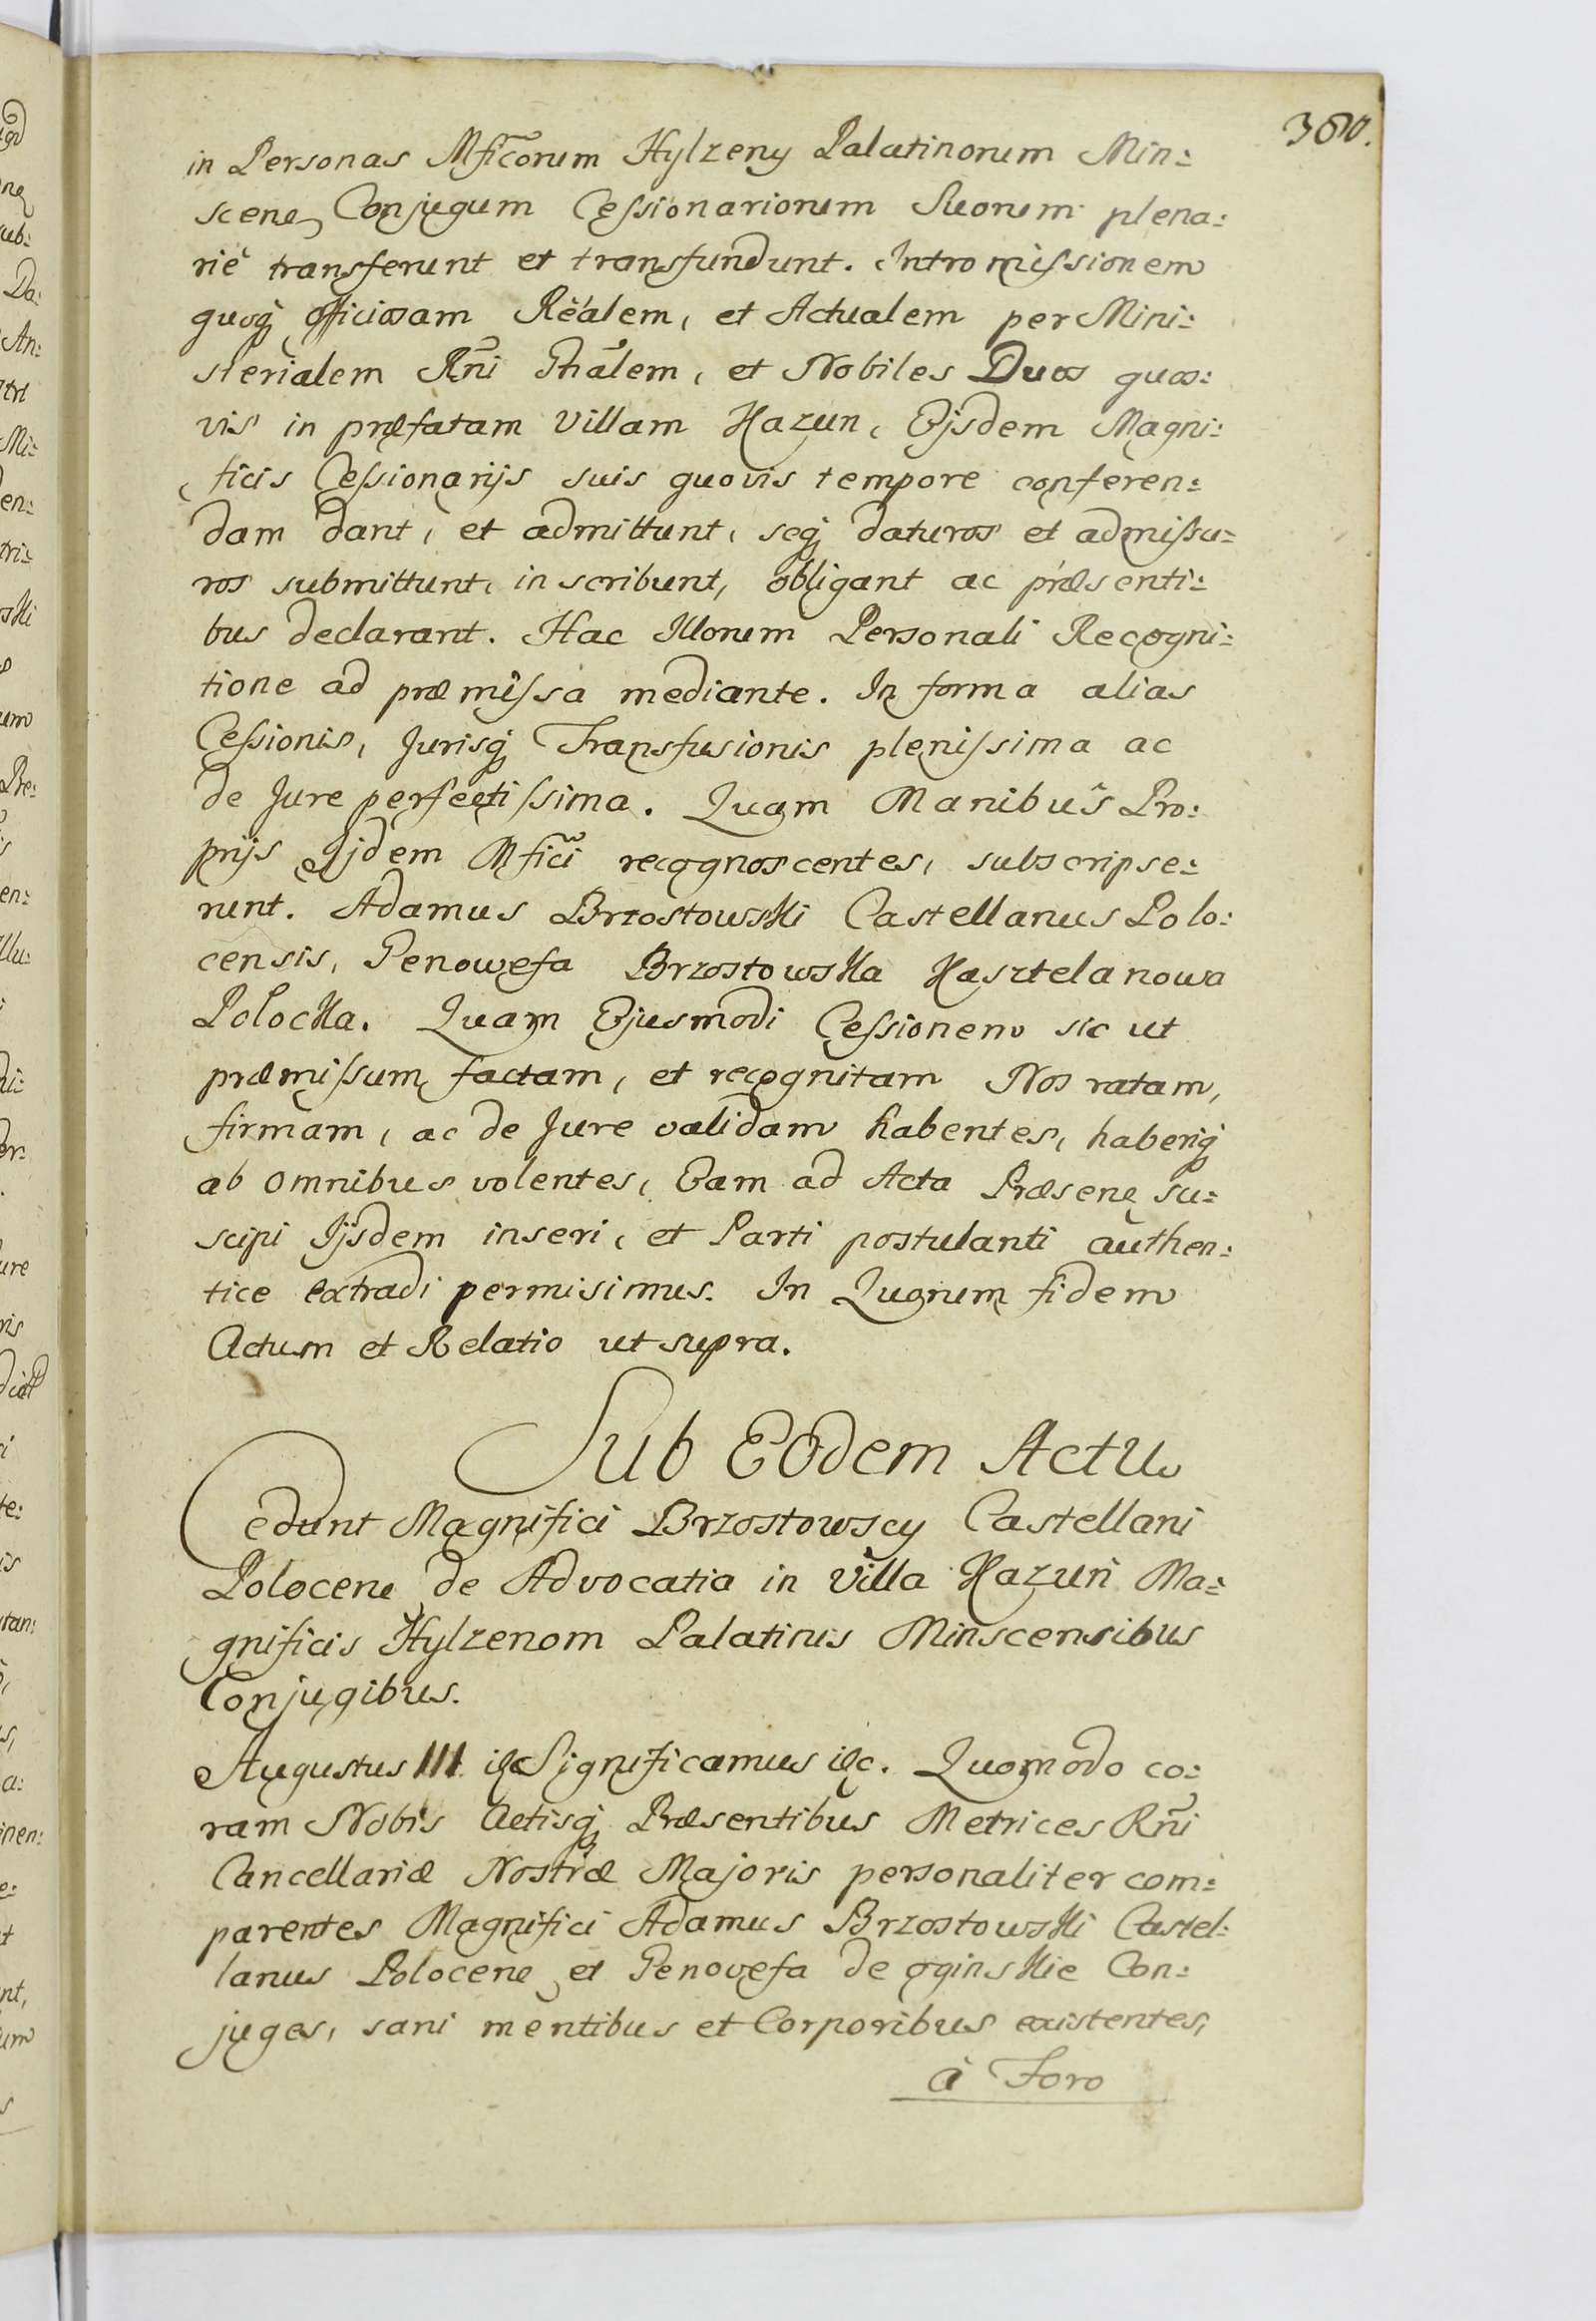 380.
in Personas Mficorum Hylzeny Palatinorum Min:
scen Conjugum Cessionariorum Suorum plena:
riè transferunt et transfundunt. Intromissionem
quoq officiosam Reálem, et Actualem per Mini:
sterialem Rni Gnalem, et Nobiles Duos quos:
vis in præfatam Villam Kazun, Ejsdem Magni:
ficis Cessionarijs suis quovis tempore conferen:
dam dant, et admittunt, seq daturos et admissu:
ros submittunt, inscribunt, obligant ac præsenti:
bus declarant. Hac Illorum Personali Recogni:
tione ad præmissa mediante. In forma alias
Cessionis, Jurisq Transfusionis plenissima ac
de Jure perfectissima. Quam Manibus Pro:
prijs Ijdem Mfici recognoscentes, subscripse:
runt. Adamus Brzostowski Castellanus Polo:
censis, Genowefa Brzostowska Kasztelanowa
Polocka. Quam Ejusmodi Cessionem sic ut
præmissum factam, et recognitam Nos ratam,
firmam, ac de Jure validam habentes, haberiq
ab omnibus volentes, Eam ad Acta Præsen su:
scipi Ijsdem inseri, et Parti postulanti authen:
tice extradi permisimus. In Quorum fidem
Actum et Relatio ut supra.
Sub Eodem Actu
Cedunt Magnifici Brzostowscy Castellani
Polocen de Advocatia in Villa Kazuń Ma:
gnificis Hylzenom Palatinis Minscensibus
Conjugibus.
Augustus III. &c Significamus &c. Quomodo co:
ram Nobis Actisq Præsentibus Metrices Rni
Cancellariæ Nostræ Majoris personaliter com:
parentes Magnifici Adamus Brzostowski Castel:
lanus Polocen et Genovefa de oginskie Con:
juges, sani mentibus et Corporibus existentes,
à Foro